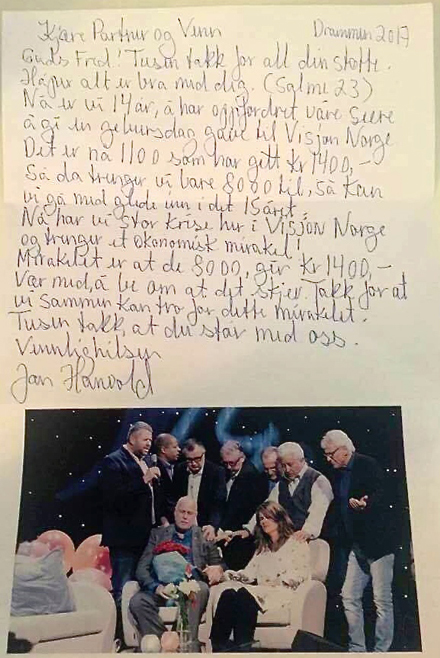 Kjære Partner og Venn Drammen 2017
Guds Fred! Tusen takk for all din støtte.
Håper alt er bra med dig. (Salme 23)
Nå er vi 14 år, å har oppfordret våre Seere
å gi en gebursdag gave til Visjon Norge
Det er nå 1100 som har gitt kr 1400,-
Så da trenger vi bare 8000 til, så kan
vi gå med glede inn i det 15 året.
Nå har vi stor krise her i Visjon Norge
og trenger et økonomisk mirakel!
Mirakelet er at de 8000, gir kr 1400,-
Vær med å be om at det skjer. Takk for at
vi sammen kan tro for dette mirakelet.
Tusen takk at du står med oss.
Vennlighilsen
Jan Hanvold